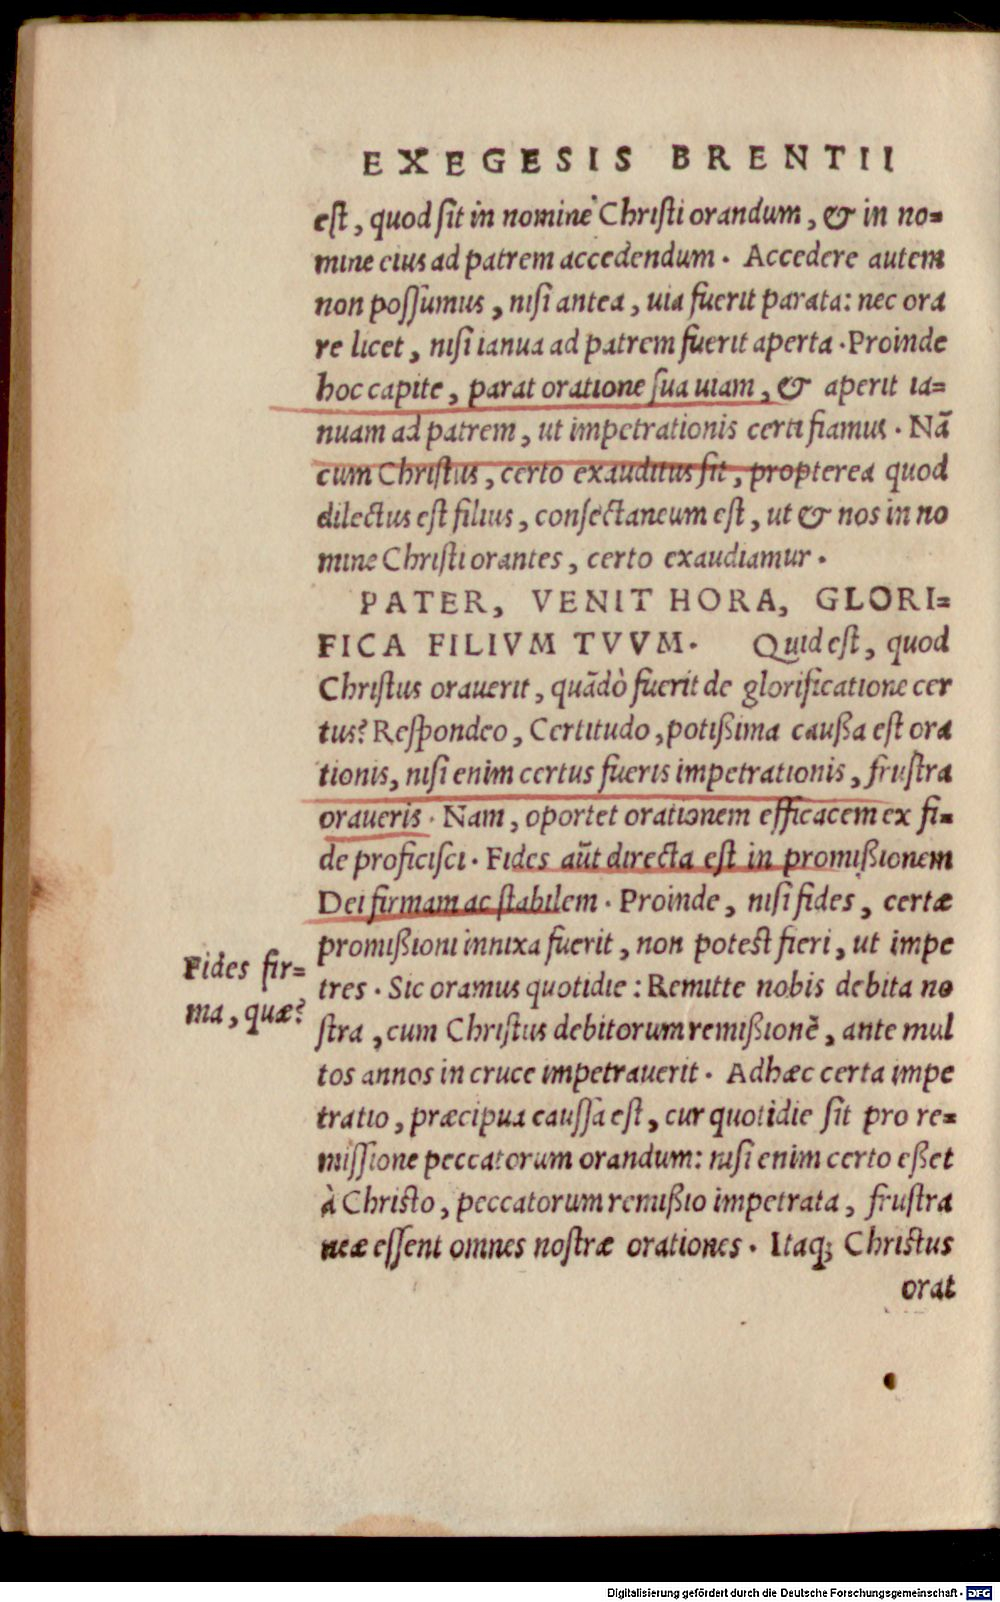 EXEGESIS BRENTII
est, quod sit in nomine Christi orandum, & in no=
mine eius ad patrem accedendum. Accedere autem
non possumus, nisi antea, uia fuerit parata: nec ora
re licet, nisi ianua ad patrem fuerit aperta. Proinde
hoc capite, parat oratione sua uiam, & aperit ia=
nuam ad patrem, ut impetrationis certi fiamus. Nã
cum Christus, certo exauditus sit, propterea quod
dilectus est filius, consectaneum est, ut & nos in no
mine Christi orantes, certo exaudiamur.
PATER, VENIT HORA, GLORI=
FICA FILIVM TVVM. Quid est, quod
Christus orauerit, quãdò fuerit de glorificatione cer
tus? Respondeo, Certitudo, potißima caußa est ora
tionis, nisi enim certus fueris impetrationis, frustra
oraueris. Nam, oportet orationem efficacem ex fi=
de proficisci. Fides aũt directa est in promißionem
Dei firmam ac stabilem. Proinde, nisi fides, certæ
promißioni innixa fuerit, non potest fieri, ut impe
Fides fir=
ma, quæ?
tres. Sic oramus quotidie: Remitte nobis debita no
stra, cum Christus debitorum remißionẽ, ante mul
tos annos in cruce impetrauerit. Adhæc certa impe
tratio, præcipua caussa est, cur quotidie sit pro re=
missione peccatorum orandum: nisi enim certo eßet
à Christo, peccatorum remißio impetrata, frustra
neæ essent omnes nostræ orationes. Itaq; Christus
orat
Digitalisierung gefördert durch die Deutsche Forschungsgemeinschaft - DFG